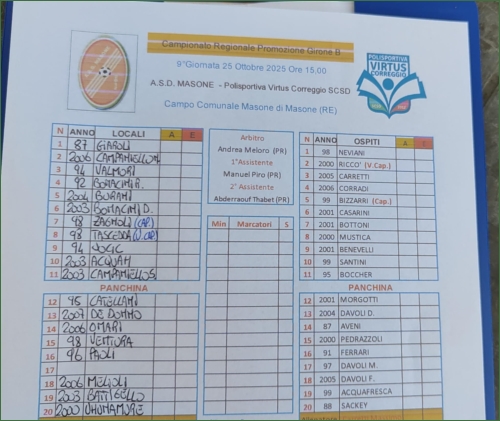 Campionato Regionale Promozione Girone B
9°Giornata 25 Ottobre 2025 Ore 15,00
A.S.D. MASONE - Polisportiva Virtus Correggio SCSD
Campo Comunale Masone di Masone (RE)
POLISPORTIVA
VIRTUS
CORREGGIO
N ANNO LOCALI A E
1 87 GIAROLI
2 2006
3 94 VALMORI
4 92 BONACINI R.
5 2004 BURANI
6 2003 BONACINI D.
7 93 ZAGNOLI (CAP.)
8 98 TASCEDDA (V.CAP.)
9 94
10 2003 ACQUAH
11 2003
PANCHINA
12 95 CATELLANI
13 2007 DE DOMMO
14 2006 OMARI
15 98 VENTURA
16 96 PAOLI
17
18 2006 MELIOLI
19 2003
20 2000
Arbitro
Andrea Meloro (PR)
1°Assistente
Manuel Piro (PR)
2° Assistente
Abderraouf Thabet (PR)
Min Marcatori S
N ANNO OSPITI A E
1 98 NEVIANI
2 2000 RICCO' (V.Cap.)
3 2005 CARRETTI
4 2006 CORRADI
5 99 BIZZARRI (Cap.)
6 2001 CASARINI
7 2001 BOTTONI
8 2000 MUSTICA
9 2001 BENEVELLI
10 99 SANTINI
11 95 BOCCHER
PANCHINA
12 2001 MORGOTTI
13 2004 DAVOLI D.
14 87 AVENI
15 2000 PEDRAZZOLI
16 91 FERRARI
17 97 DAVOLI M.
18 2005 DAVOLI F.
19 99 ACQUAFRESCA
20 88 SACKEY